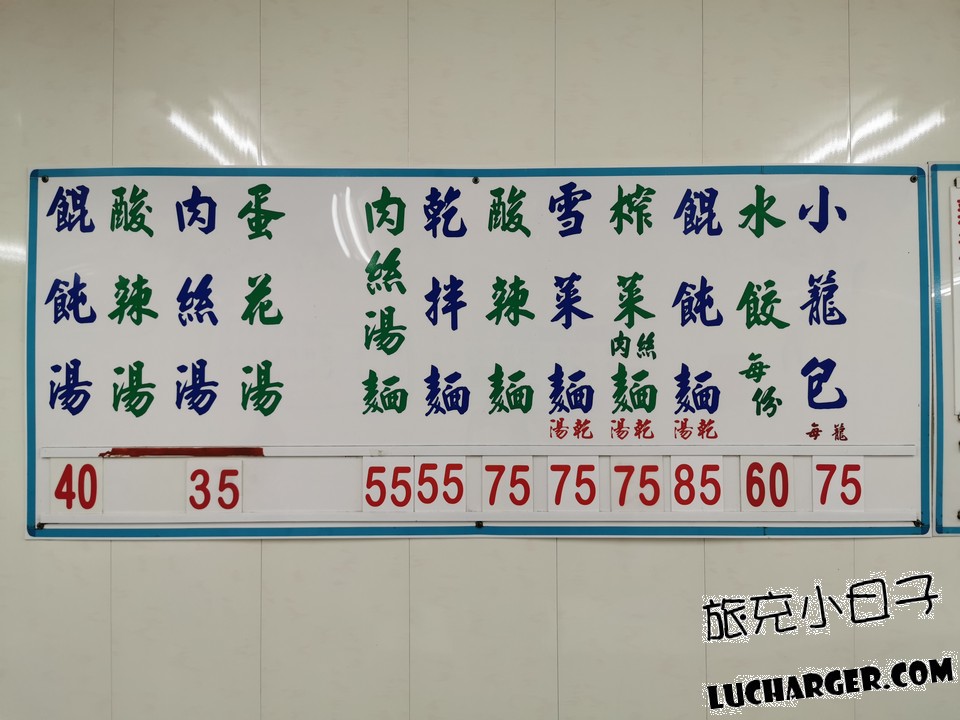 小籠包 每籠 75
水餃 每份 60
餛飩麵 湯乾 85
榨菜肉絲麵 湯乾 75
雪菜麵 湯乾 75
酸辣麵 75
乾拌麵 55
肉絲湯麵 55
蛋花湯
肉絲湯 35
酸辣湯
餛飩湯 40
旅充小日子
LUCHARGER.COM